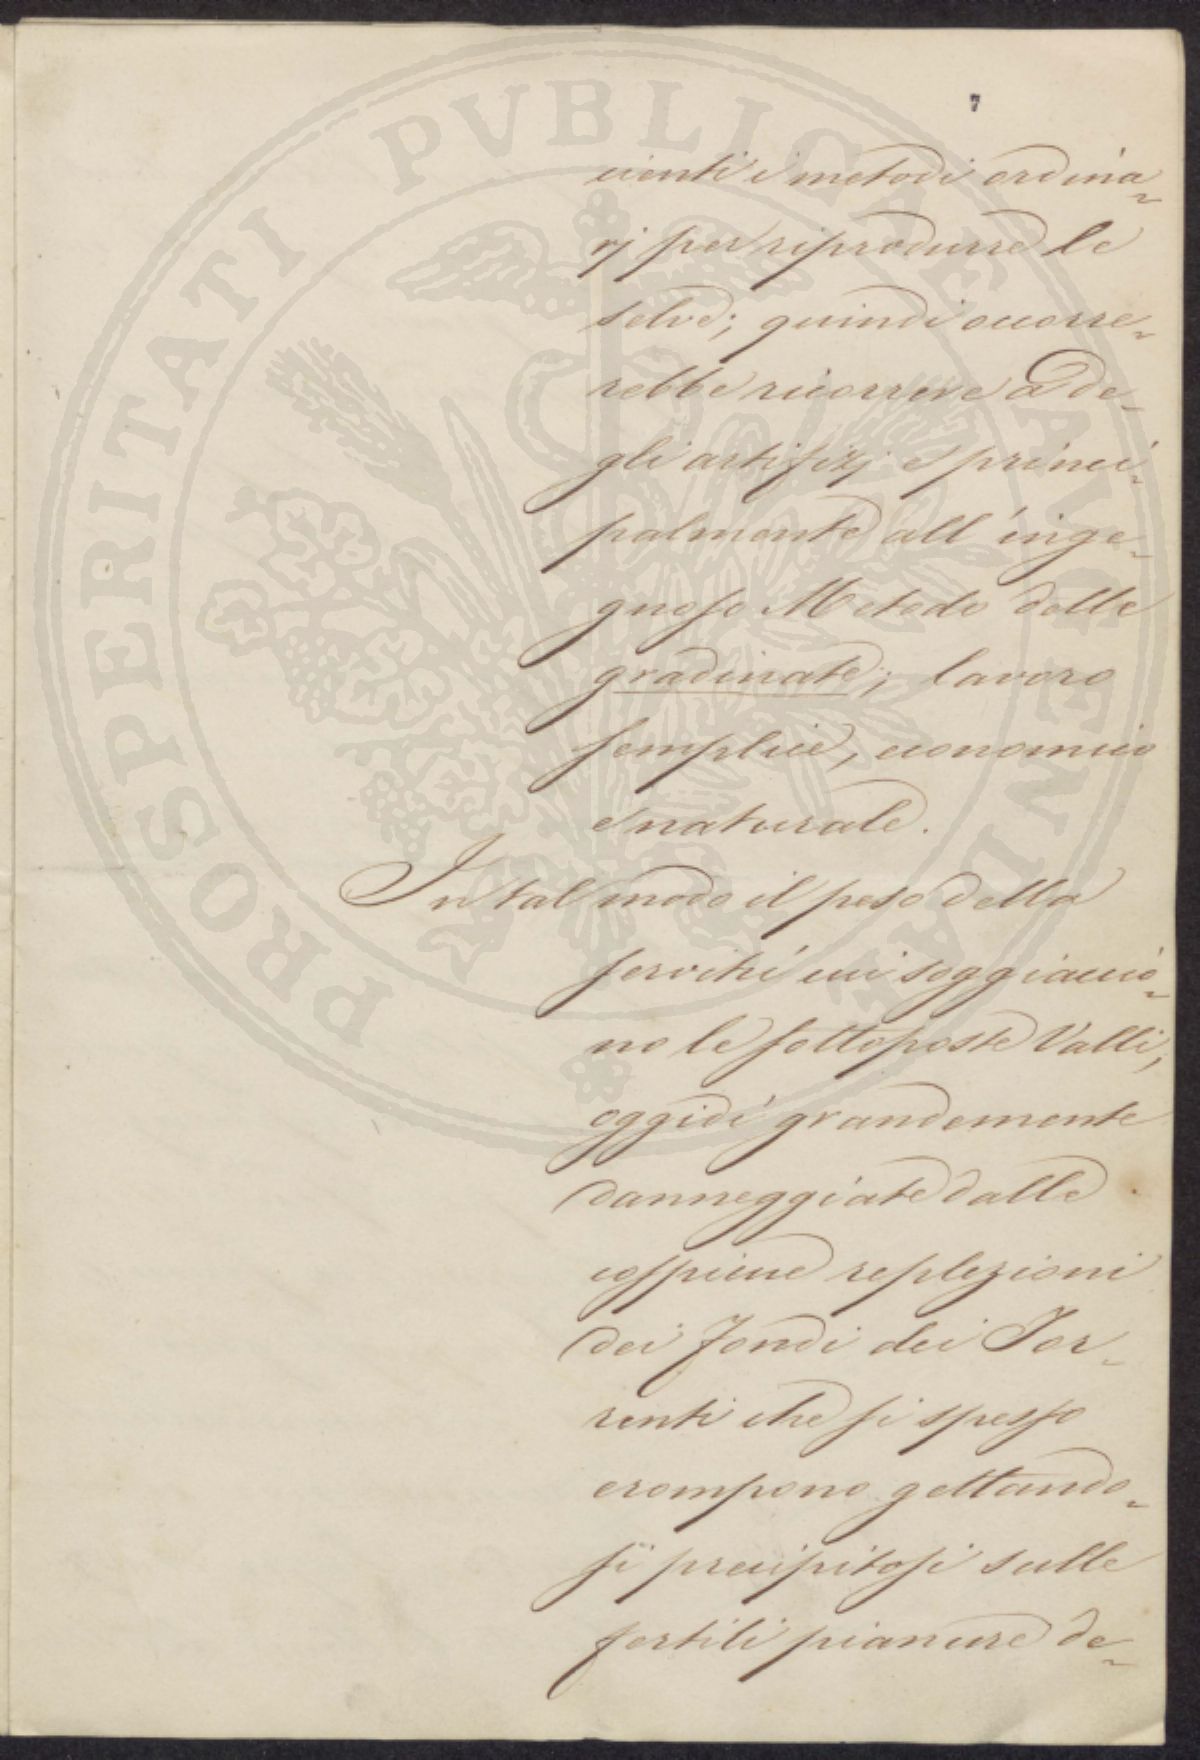 7
cienti i metodi ordina-
rj per riprodurre le
selve; quindi occorre-
rebbe ricorrere a de-
gli artifizj e princi-
palmente all' inge-
gnoso Metodo delle
gradinate; lavoro
semplice, economico
e naturale.
In tal modo il peso della
servitù cui soggiaccio-
no le sottoposte Valli,
oggidì grandemente
danneggiate dalle
cospicue replezioni
dei fondi dei Tor-
renti che si spesso
erompono gettando-
si precipitosi sulle
fertili pianure de-
PROSPERITATI PVBLICAE AVGENDAE